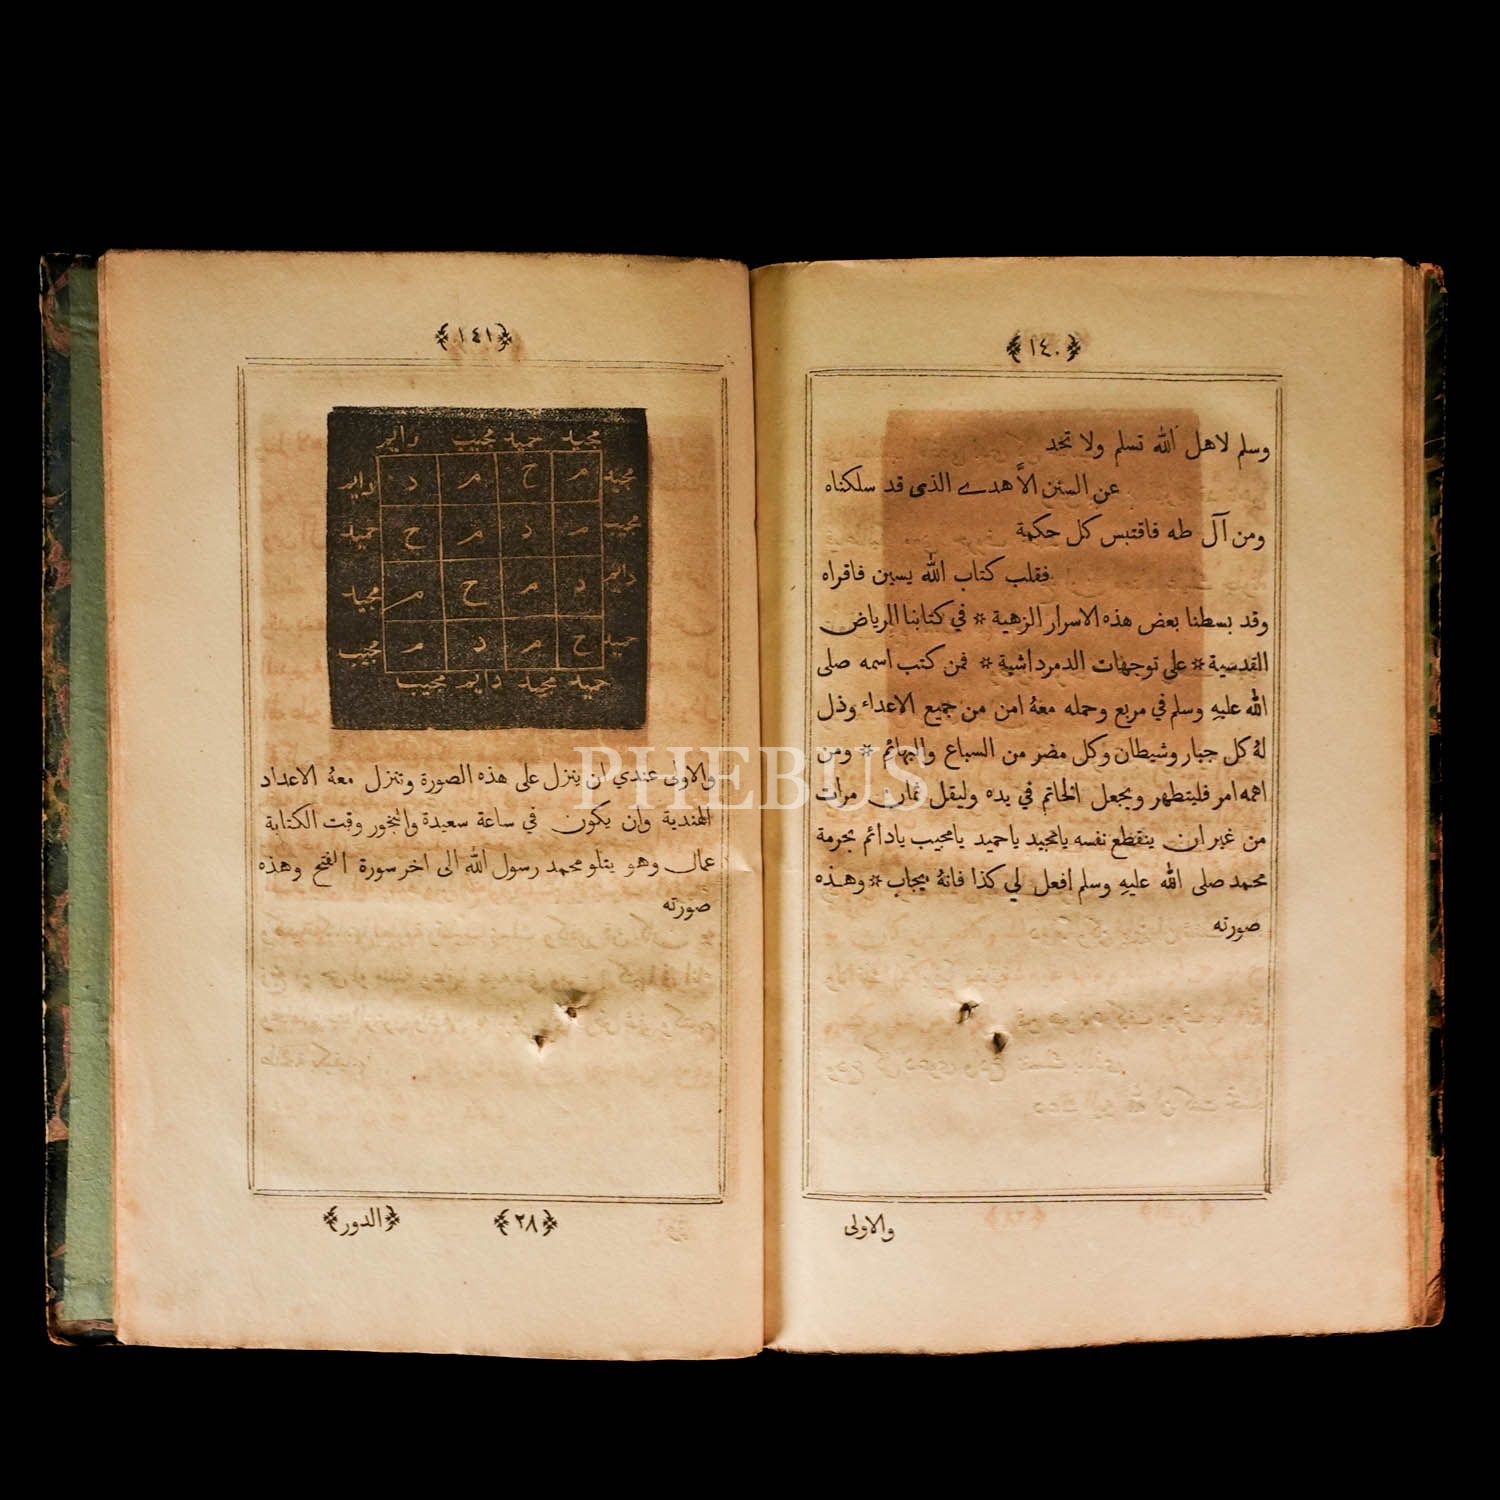 ﴿١٤٠﴾
وسلم لاهل الله تسلم ولا تحد
عن السنن الاَّ هدے الذى قد سلكناه
ومن آل طه فاقتبس كل حكمة
فقلب كتاب الله يسين فاقراه
وقد بسطنا بعض هذه الاسرار الزهية * في كتابنا الرياض
القدسية * على توجهات الدمرداشية * فمن كتب اسمه صلى
الله عليهِ وسلم في مربع وحمله معهُ امن من جميع الاعداء وذل
لهُ كل جبار وشيطان وكل مضر من السباع والبهائم * ومن
اهمه امر فليتطهر ويجعل الخاتم في يده وليقل ثمان مرات
من غير ان ينقطع نفسه يامجيد ياحميد يامجيب يادائم بحرمة
محمد صلى الله عليهِ وسلم افعل لي كذا فانهُ يجاب * وهذه
صورته
والاولى
﴿١٤١﴾
مجيد حميد مجيب دايم
مجيد م ح م د دايم
مجيب م د م ح حميد
دايم د م ح م مجيد
حميد ح م د م مجيب
حميد مجيد دايم مجيب
والاولى عندي ان ينزل على هذه الصورة وتنزل معهُ الاعداد
الهندية وان يكون في ساعة سعيدة والبخور وقت الكتابة
عمال وهو يتلو محمد رسول الله الى اخر سورة الفتح وهذه
صورته
﴿٢٨﴾ ﴿الدور﴾
PHEBUS